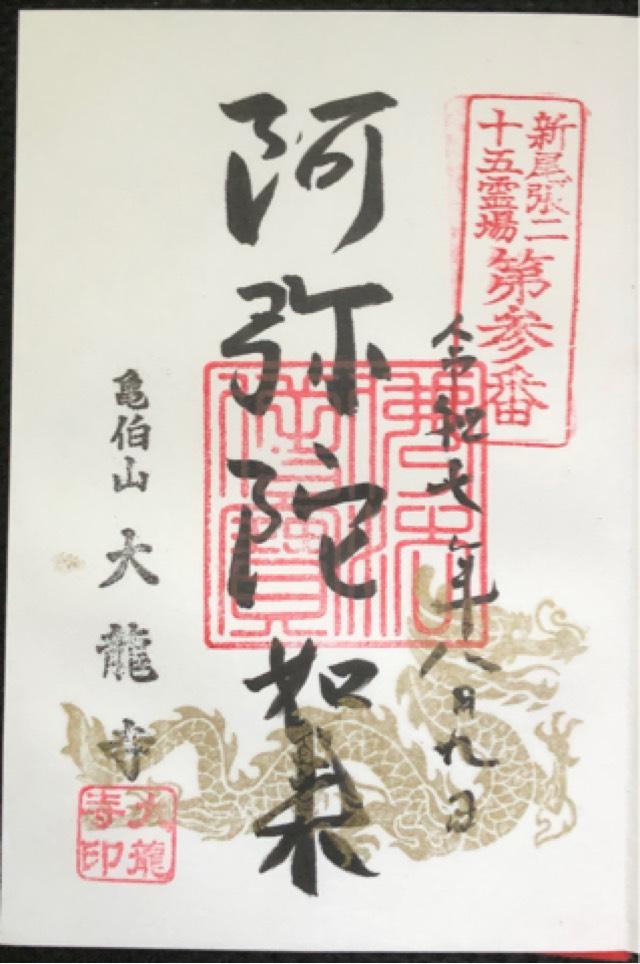 新尾張二
十五霊場
第参番
令和七年八月九日
阿弥陀如来
佛法僧寳
亀伯山 大龍寺
大龍
寺印